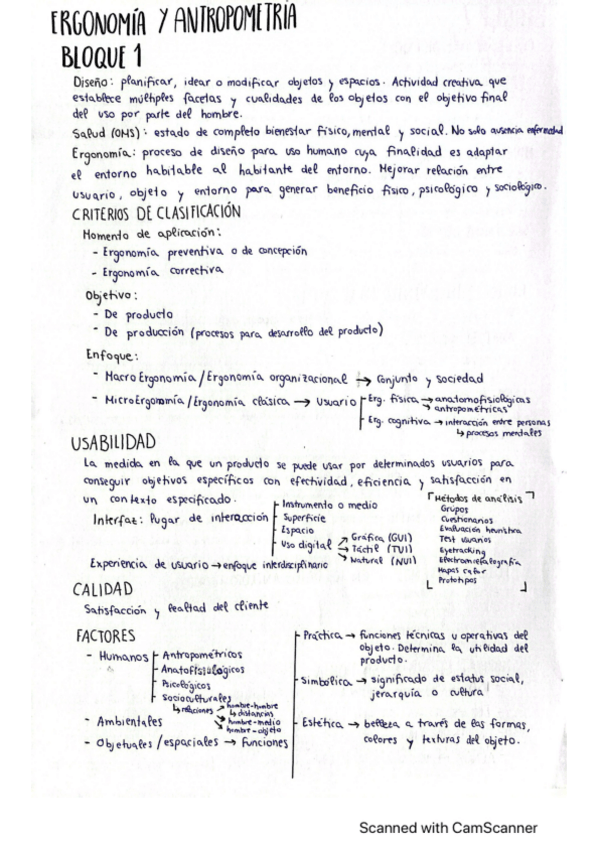 ERGONOMÍA Y ANTROPOMETRÍA
BLOQUE 1
Diseño: planificar, idear o modificar objetos y espacios. Actividad creativa que
establece múltiples facetas y cualidades de los objetos con el objetivo final
del uso por parte del hombre.
Salud (OMS): estado de completo bienestar físico, mental y social. No solo ausencia enfermedad
Ergonomía: proceso de diseño para uso humano cuya finalidad es adaptar
el entorno habitable al habitante del entorno. Mejorar relación entre
usuario, objeto y entorno para generar beneficio físico, psicológico y sociológico.
CRITERIOS DE CLASIFICACIÓN
Momento de aplicación:
- Ergonomía preventiva o de concepción
- Ergonomía correctiva
Objetivo:
- De producto
- De producción (procesos para desarrollo del producto)
Enfoque:
- MacroErgonomía / Ergonomía organizacional → Conjunto y sociedad
- MicroErgonomía / Ergonomía clásica → Usuario
Erg. física → anatomofisiológicas
→ antropométricas
Erg. cognitiva → interacción entre personas
↳ procesos mentales
USABILIDAD
La medida en la que un producto se puede usar por determinados usuarios para
conseguir objetivos específicos con efectividad, eficiencia y satisfacción en
un contexto especificado.
Interfaz: lugar de interacción
Instrumento o medio
Superficie
Espacio
Uso digital
→ Gráfica (GUI)
→ Táctil (TUI)
→ Natural (NUI)
Experiencia de usuario → enfoque interdisciplinario
Métodos de análisis
Grupos
Cuestionarios
Evaluación heurística
Test usuarios
Eyetracking
Electromiefalografía
Mapas calor
Prototipos
CALIDAD
Satisfacción y lealtad del cliente
FACTORES
- Humanos
Antropométricos
Anatofisiológicos
Psicológicos
Socioculturales
↳ relaciones
→ hombre-hombre
↳ distancias
→ hombre-medio
→ hombre-objeto
- Ambientales
- Objetuales / espaciales → Funciones
Práctica → funciones técnicas u operativas del
objeto. Determina la utilidad del
producto.
Simbólica → significado de estatus social,
jerarquía o cultura
Estética → belleza a través de las formas,
colores y texturas del objeto.
Scanned with CamScanner